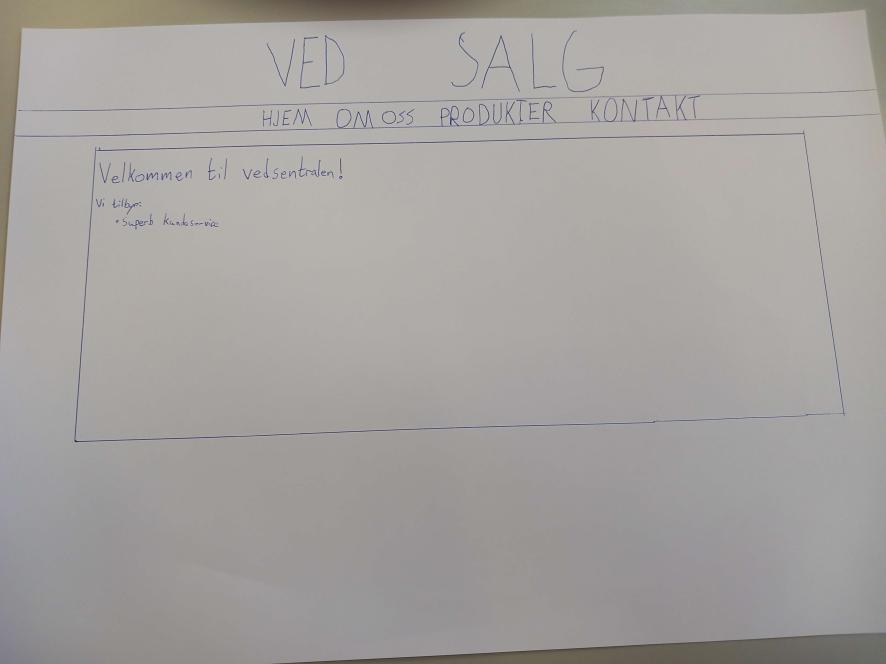 VED SALG
HJEM OM OSS PRODUKTER KONTAKT
Velkommen til vedsentralen!
Vi tilbyr:
• Superb kundeservice